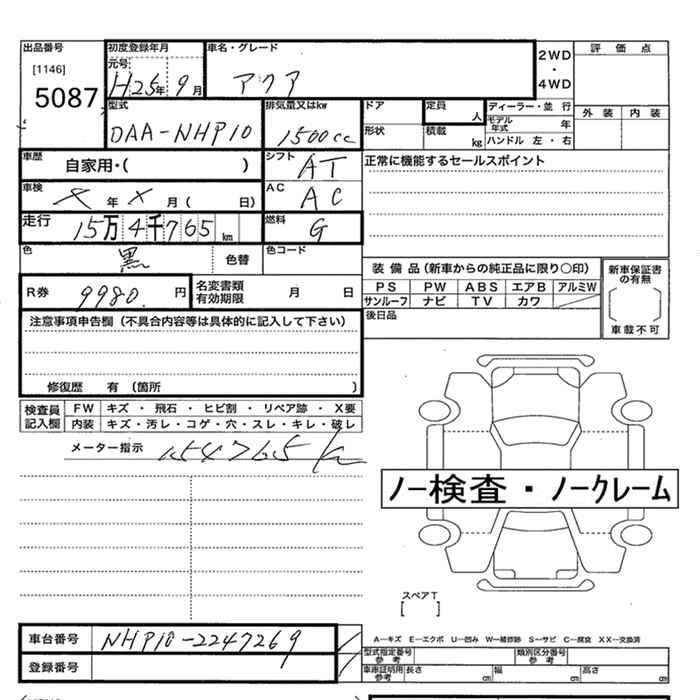 出品番号 初度登録年月 車名・グレード 2WD ・ 4WD 評価点
[1146] 元号 H25年 9月 アクア
5087
型式 排気量又はkw ドア 定員 人 ディーラー・並行 外装 内装
DAA-NHP10 1500cc 形状 積載 kg モデル年式 年
ハンドル 左・右
車歴 自家用・( ) シフト AT 正常に機能するセールスポイント
車検 X 年 X 月 ( 日) AC AC
走行 15万4千765km 燃料 G
色 黒 色替 色コード
装備品(新車からの純正品に限り○印) 新車保証書の有無
R券 9980. 円 名変書類有効期限 月 日
PS PW ABS エアB アルミW
サンルーフ ナビ TV カワ
車載不可
注意事項申告欄(不具合内容等は具体的に記入して下さい) 後日品
修復歴 有 (箇所 )
検査員記入欄 FW キズ・飛石・ヒビ割・リペア跡・X要
内装 キズ・汚レ・コゲ・穴・スレ・キレ・破レ
メーター指示 154765km
ノー検査・ノークレーム
スペアT
[ ]
車台番号 NHP10-2247269
A―キズ E―エクボ U―凹み W―補修跡 S―サビ C―腐食 XX―交換済
型式指定番号 参考 類別区分番号 参考
登録番号 車庫証明用 参考 長さ cm 幅 cm 高さ cm